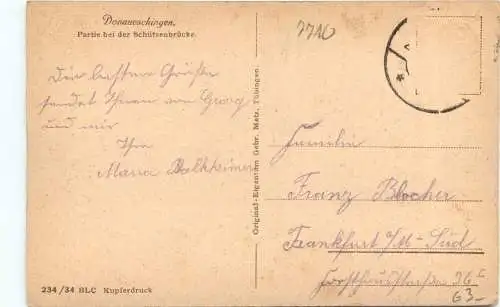 Donaueschingen.
Partie bei der Schützenbrücke.
7710
Die besten Grüße
sendet Ihnen von Georg
und mir
Ihre
Maria
Original-Eigentum Gebr. Metz, Tübingen.
Familie
Franz Blocher
Frankfurt a/M-Süd
26 I
63-
234/34 BLC Kupferdruck